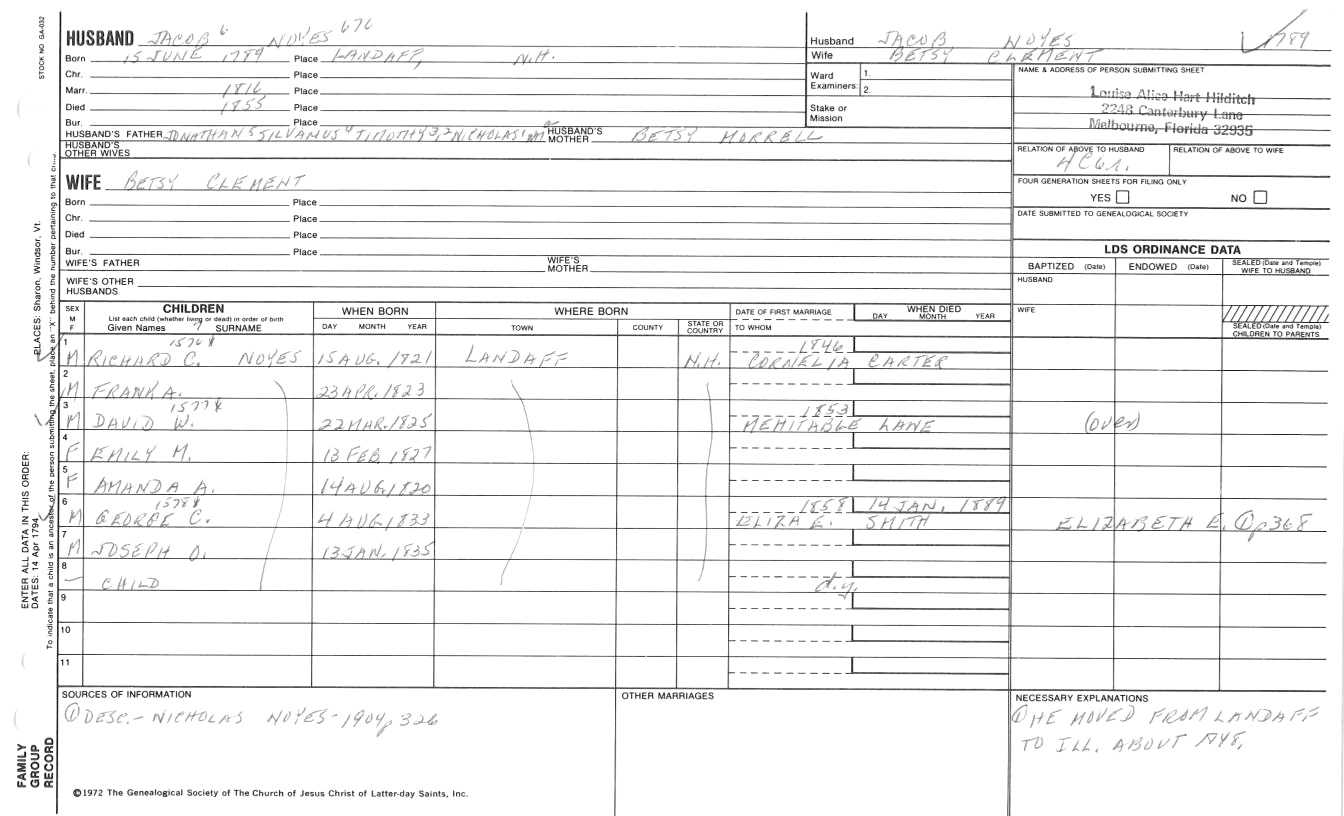 STOCK NO. GA-032
HUSBAND JACOB 6 NOYES 676
Born 15 JUNE 1789 Place LANDAFF, N.H.
Chr. Place
Marr. 1816 Place
Died 1855 Place
Bur. Place
HUSBAND'S FATHER JONATHAN 5 SILVANUS 4 TIMOTHY 3, 2 NICHOLAS 1 HUSBAND'S MOTHER BETSY MORRELL
HUSBAND'S OTHER WIVES
Husband JACOB NOYES 1789
Wife BETSY CLEMENT
Ward Examiners 1. 2.
Stake or Mission
NAME & ADDRESS OF PERSON SUBMITTING SHEET
Louise Alice Hart Hilditch
2248 Canterbury Lane
Melbourne, Florida 32935
RELATION OF ABOVE TO HUSBAND RELATION OF ABOVE TO WIFE
4C6r.
FOUR GENERATION SHEETS FOR FILING ONLY
YES NO
DATE SUBMITTED TO GENEALOGICAL SOCIETY
WIFE BETSY CLEMENT
Born Place
Chr. Place
Died Place
Bur. Place
WIFE'S FATHER WIFE'S MOTHER
WIFE'S OTHER HUSBANDS
LDS ORDINANCE DATA
BAPTIZED (Date) ENDOWED (Date) SEALED (Date and Temple) WIFE TO HUSBAND
HUSBAND
WIFE
SEALED (Date and Temple) CHILDREN TO PARENTS
SEX M F
CHILDREN
List each child (whether living or dead) in order of birth
Given Names 7 SURNAME
WHEN BORN
DAY MONTH YEAR
WHERE BORN
TOWN COUNTY STATE OR COUNTRY
DATE OF FIRST MARRIAGE
TO WHOM
WHEN DIED
DAY MONTH YEAR
1 M RICHARD C. NOYES 15 AUG. 1821 LANDAFF N.H. 1846 CORNELIA CARTER
2 M FRANK A. 23 APR. 1823
3 M DAVID W. 22 MAR. 1825 1853 MEHITABLE LANE (over)
4 F EMILY M. 13 FEB. 1827
5 F AMANDA A. 14 AUG. 1820
6 M GEORGE C. 4 AUG. 1833 1858 14 JAN. 1889 ELIZA E. SMITH ELIZABETH E. ① p368
7 M JOSEPH O. 13 JAN. 1835
8 – CHILD d.y.
9
10
11
SOURCES OF INFORMATION
① DESC.- NICHOLAS NOYES-1904p 326
OTHER MARRIAGES
NECESSARY EXPLANATIONS
① HE MOVED FROM LANDAFF
TO ILL. ABOUT
ENTER ALL DATA IN THIS ORDER:
DATES: 14 Apr 1794
PLACES: Sharon, Windsor, Vt.
To indicate that a child is an ancestor of the person submitting the sheet, place an "X" behind the number pertaining to that
FAMILY GROUP RECORD
©1972 The Genealogical Society of The Church of Jesus Christ of Latter-day Saints, Inc.